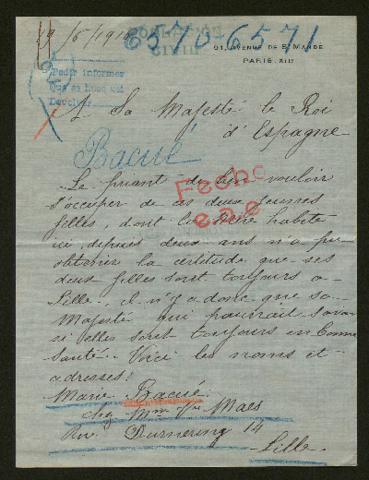 29/6/1916
6570-6571
91, AVENUE DE ST MANDÉ
PARIS. XIIe
Pedir informes
Que se hace
Devolver
A Sa Majesté le Roi
d'Espagne
Bacué
Le priant de bien vouloir
s'occuper de ces deux jeunes
filles, dont la mère habite
ici, depuis deux ans n'a pu
obtenir la certitude que ses
deux filles sont toujours à
Lille. il n'y a donc que sa
Majesté qui pourrait savoir
si elles sont toujours en bonne
santé. Voici les noms et
adresses:
Fecho
Marie Bacué
chez Mme Vve Maes
Rue 14
Lille.